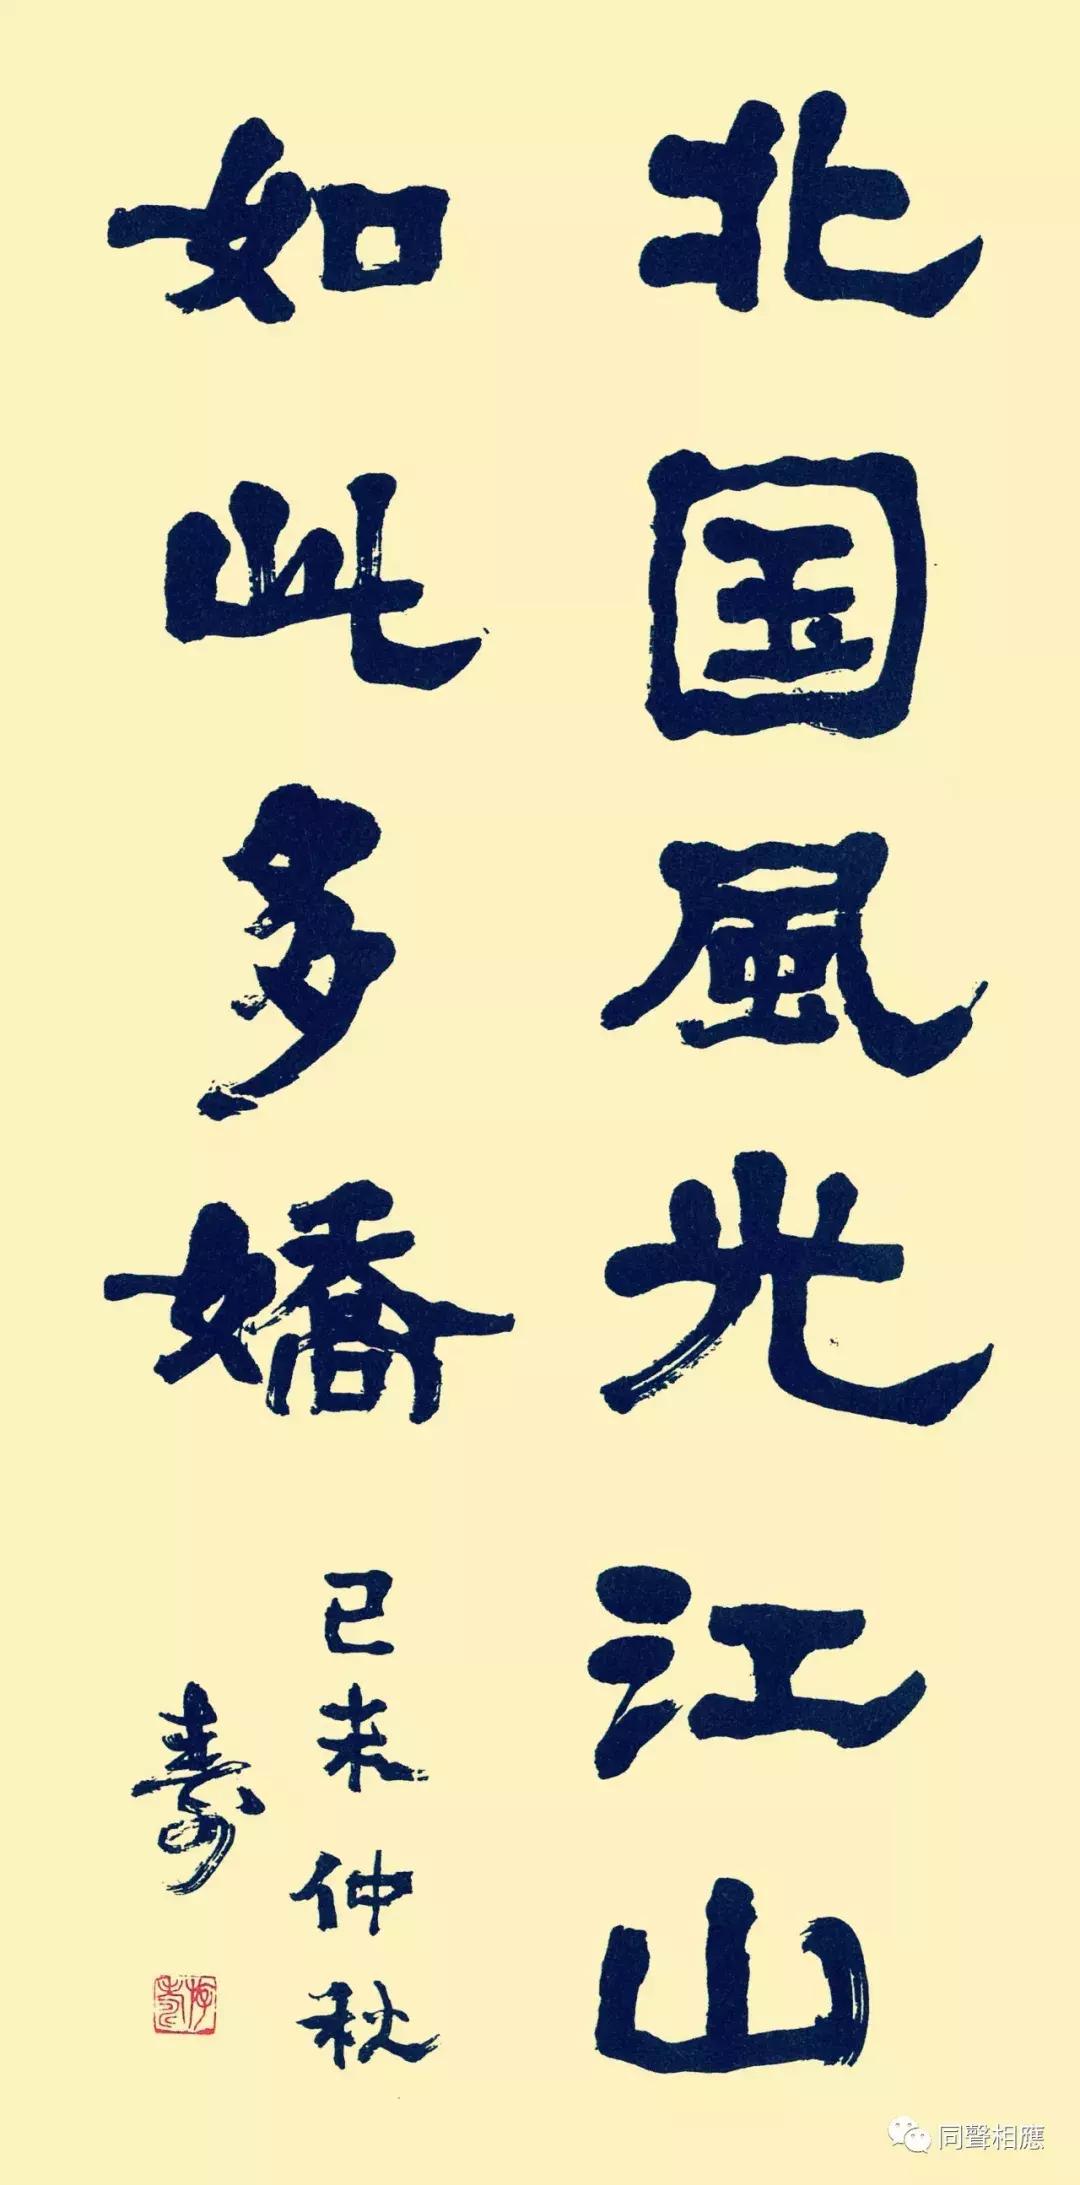 北国風光江山
如此多嬌
己未仲秋
壽
存壽
同聲相應